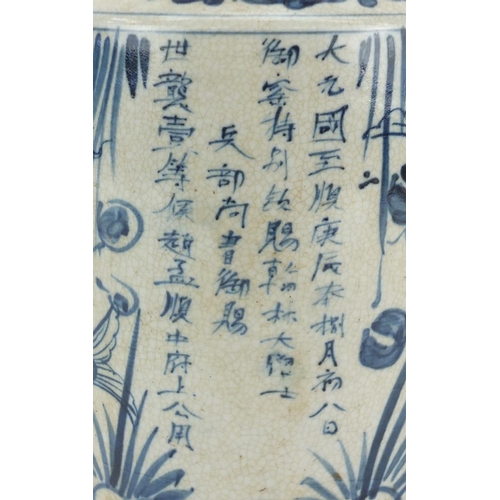 大元國至順庚辰年捌月初八日
御窯特別敕賜翰林大學士
兵部尚書御賜
世襲壹等侯趙孟順中府上公用